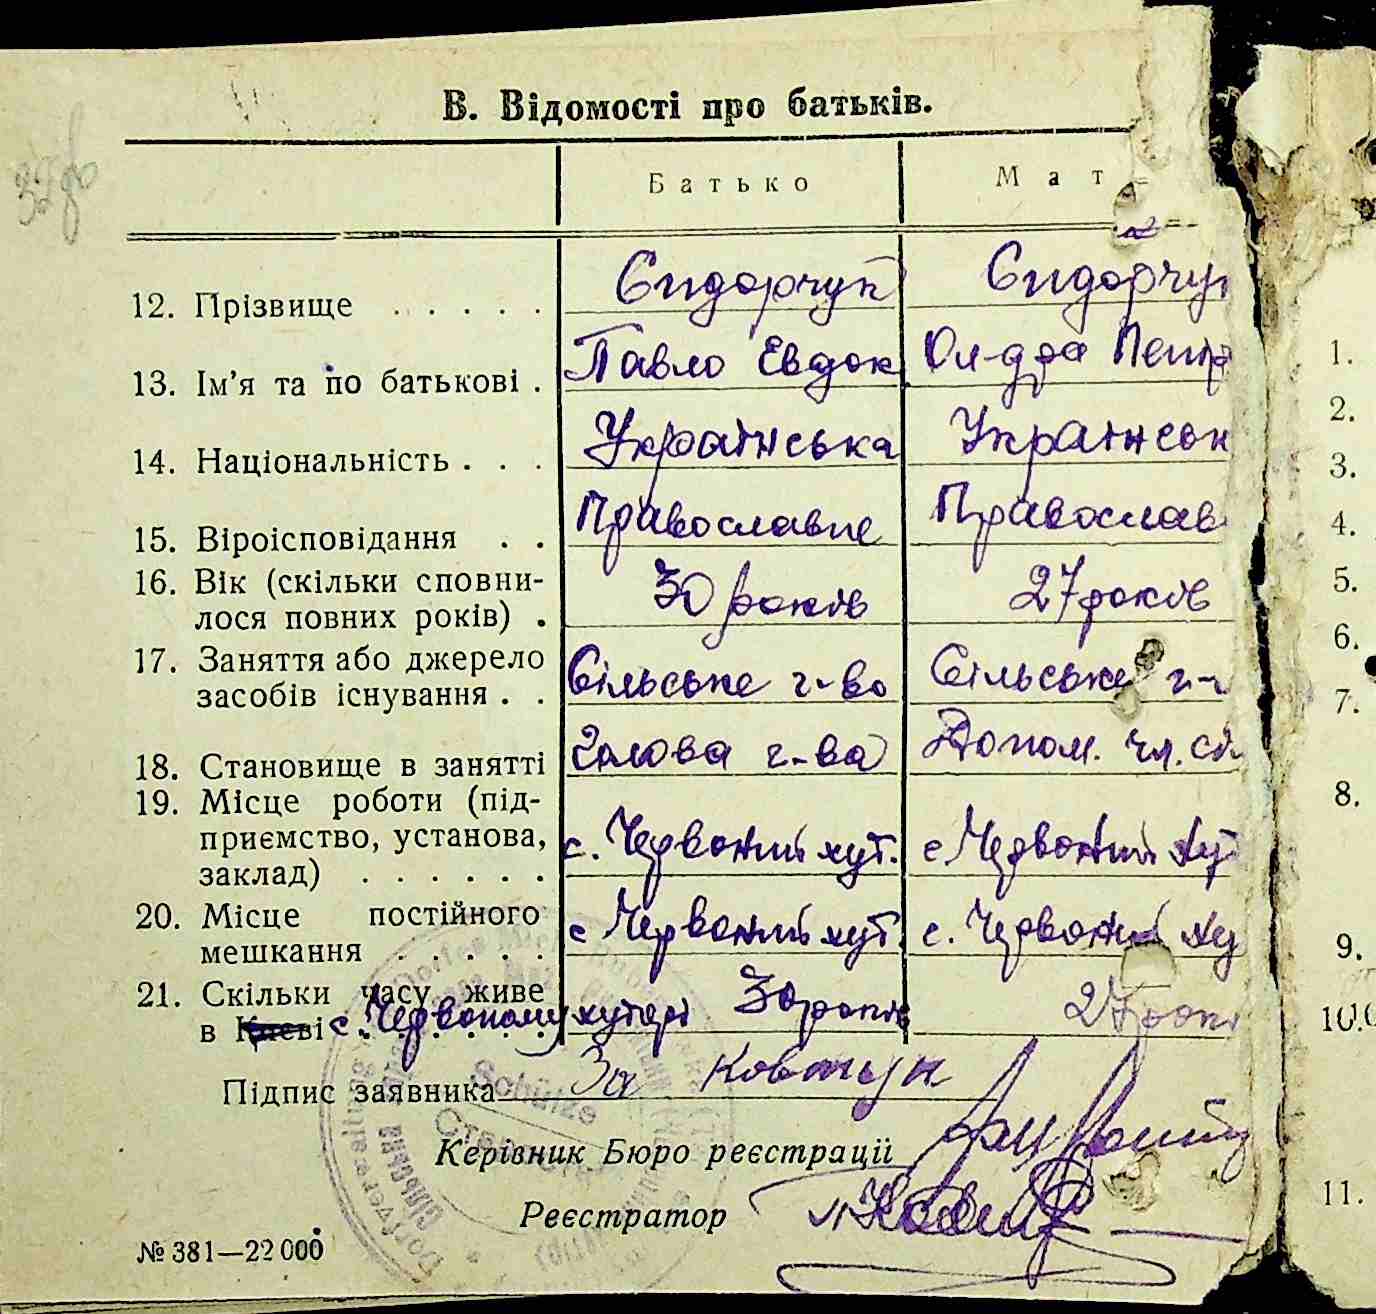 В. Відомості про батьків.
Батько Мат
12. Прізвище . . . . . Сидорчук Сидорчук
13. Ім'я та по батькові . Павло Евдок Ол-дра Петр
14. Національність . . . Українська Українськ
15. Віроісповідання . . Православне Православ
16. Вік (скільки сповни-
лося повних років) . 30 років 27 років
17. Заняття або джерело
засобів існування . . Сільське г-во Сільське г-
18. Становище в занятті Голова г-ва Допом. чл. сі
19. Місце роботи (під-
приємство, установа, с. Червоний хут. с Червоний хут
заклад) . . . . . .
20. Місце постійного
мешкання . . . . . с Червоний хут. с. Червоний ху
21. Скільки часу живе
в Києві с. Червоному хуторі 30 років 27 рокі
Підпис заявника За Ковтун
Керівник Бюро реєстрації
Реєстратор
№ 381—22 000
Schulze
1.
2.
3.
4.
5.
6.
7.
8.
9.
10.
11.